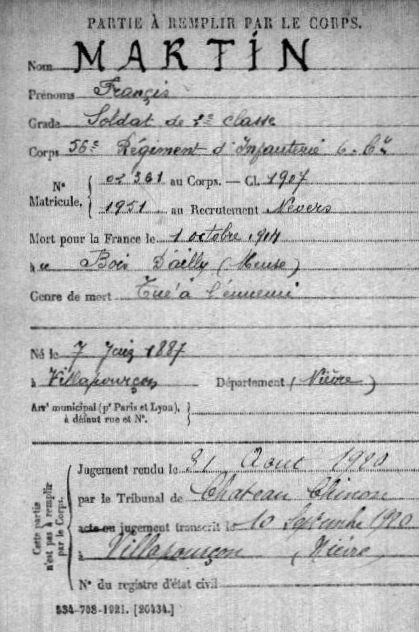 PARTIE À REMPLIR PAR LE CORPS.
Nom MARTIN
Prénoms François
Grade Soldat de 2e classe
Corps 56e Régiment d'Infanterie 6e Cie
N° Matricule. 02361 au Corps. — Cl. 1907
1951 au Recrutement Nevers
Mort pour la France le 1 octobre 1914
à au Bois D'ailly (Meuse)
Genre de mort Tué à l'ennemi
Né le 7 Juin 1887
à Villapourçon Département (Nièvre)
Arr^t municipal (p^r Paris et Lyon),
à défaut rue et N°.
Cette partie n'est pas à remplir par le Corps.
Jugement rendu le 31 Août 1920
par le Tribunal de Chateau Chinon
acte ou jugement transcrit le 10 Septembre 1920
à Villapourçon (Nièvre)
N° du registre d'état civil
534-708-1921. [20434.]